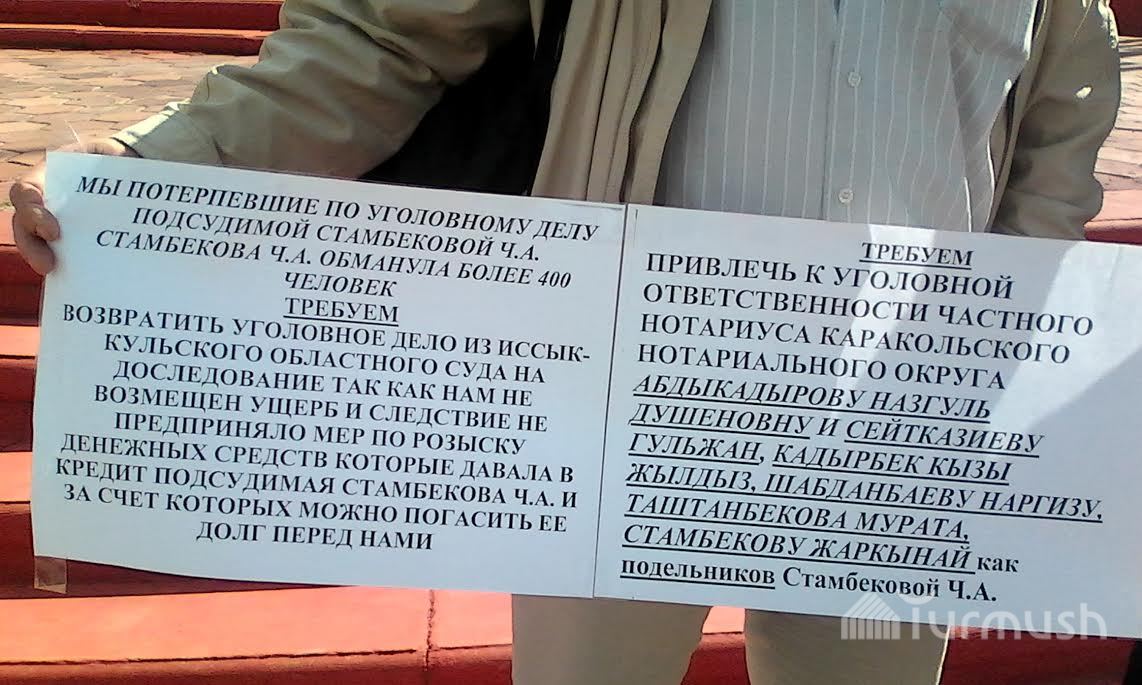 МЫ ПОТЕРПЕВШИЕ ПО УГОЛОВНОМУ ДЕЛУ
ПОДСУДИМОЙ СТАМБЕКОВОЙ Ч.А.
СТАМБЕКОВА Ч.А. ОБМАНУЛА БОЛЕЕ 400
ЧЕЛОВЕК
ТРЕБУЕМ
ВОЗВРАТИТЬ УГОЛОВНОЕ ДЕЛО ИЗ ИССЫК-
КУЛЬСКОГО ОБЛАСТНОГО СУДА НА
ДОСЛЕДОВАНИЕ ТАК КАК НАМ НЕ
ВОЗМЕЩЕН УЩЕРБ И СЛЕДСТВИЕ НЕ
ПРЕДПРИНЯЛО МЕР ПО РОЗЫСКУ
ДЕНЕЖНЫХ СРЕДСТВ КОТОРЫЕ ДАВАЛА В
КРЕДИТ ПОДСУДИМАЯ СТАМБЕКОВА Ч.А. И
ЗА СЧЕТ КОТОРЫХ МОЖНО ПОГАСИТЬ ЕЕ
ДОЛГ ПЕРЕД НАМИ
ТРЕБУЕМ
ПРИВЛЕЧЬ К УГОЛОВНОЙ
ОТВЕТСТВЕННОСТИ ЧАСТНОГО
НОТАРИУСА КАРАКОЛЬСКОГО
НОТАРИАЛЬНОГО ОКРУГА
АБДЫКАДЫРОВУ НАЗГУЛЬ
ДУШЕНОВНУ И СЕЙТКАЗИЕВУ
ГУЛЬЖАН, КАДЫРБЕК КЫЗЫ
ЖЫЛДЫЗ, ШАБДАНБАЕВУ НАРГИЗУ,
ТАШТАНБЕКОВА МУРАТА,
СТАМБЕКОВУ ЖАРКЫНАЙ как
подельников Стамбековой Ч.А.
Turmush